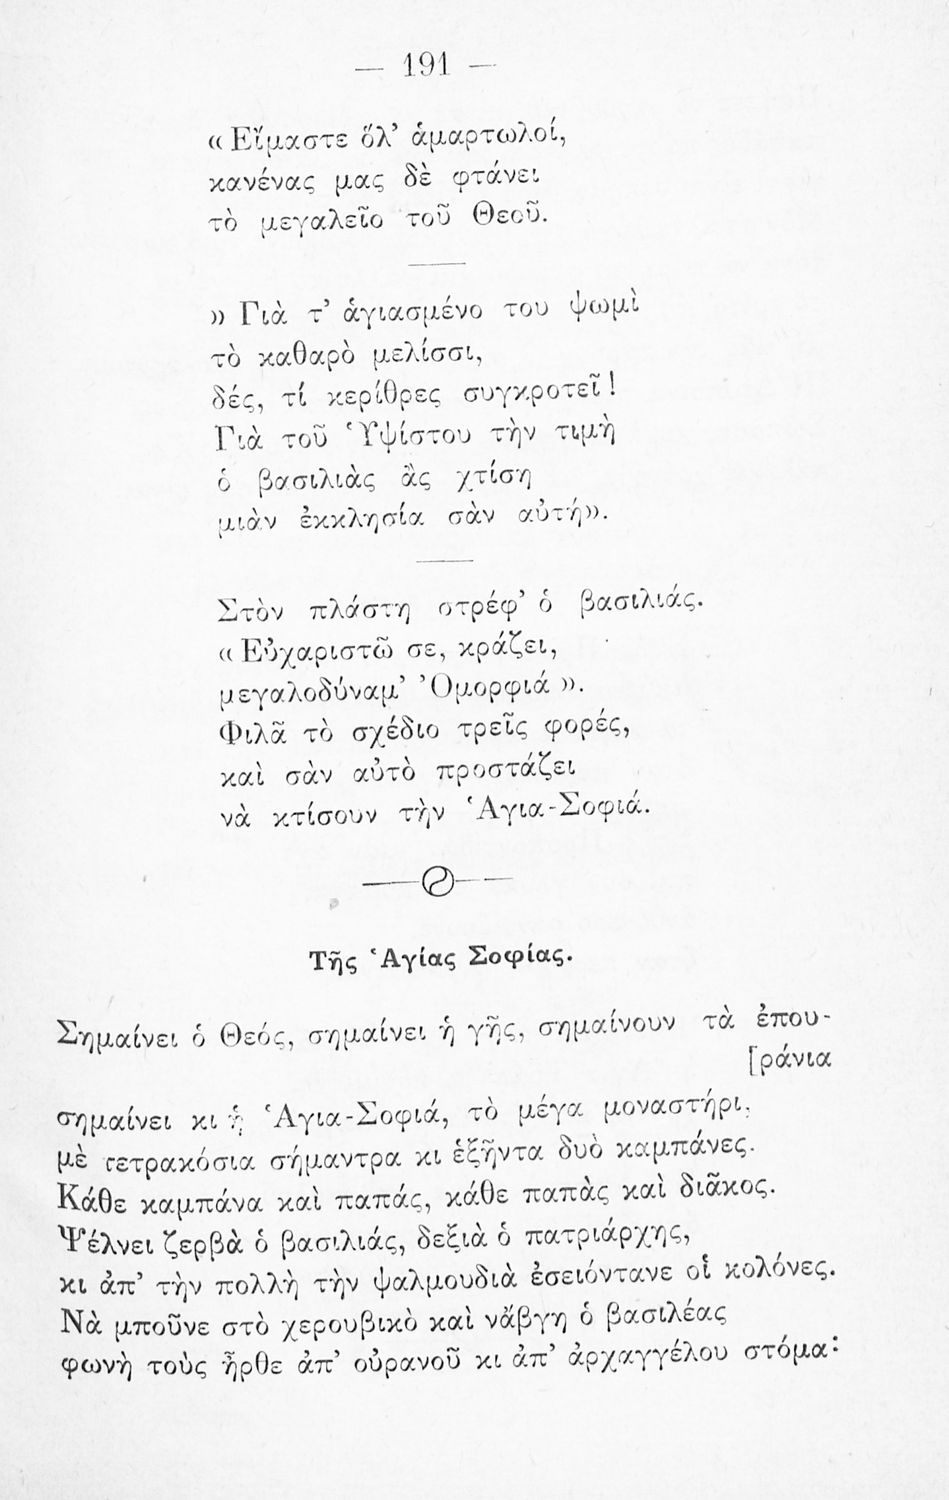 — 191 —
« Εἴμαστε ὅλ’ ἁμαρτωλοί,
κανένας μας δὲ φτάνει
τὸ μεγαλεῖο τοῦ Θεοῦ.
» Γιὰ τ’ ἁγιασμένο του ψωμὶ
τὸ καθαρὸ μελίσσι,
δές, τί κερίθρες συγκροτεῖ!
Γιὰ τοῦ Ὑψίστου τὴν τιμὴ
ὁ βασιλιὰς ἂς χτίση
μιὰν ἐκκλησία σὰν αὐτή».
Στὸν πλάστη στρέφ’ ὁ βασιλιάς.
« Εὐχαριστῶ σε, κράζει,
μεγαλοδύναμ’ Ὀμορφιά ».
Φιλᾶ τὸ σχέδιο τρεῖς φορές,
καὶ σὰν αὐτὸ προστάζει
νὰ κτίσουν τὴν Ἁγια-Σοφιά.
Τῆς Ἁγίας Σοφίας.
Σημαίνει ὁ Θεός, σημαίνει ἡ γῆς, σημαίνουν τὰ ἐπου-
[ράνια
σημαίνει κι ἡ Ἁγια-Σοφιά, τὸ μέγα μοναστήρι,
μὲ τετρακόσια σήμαντρα κι ἑξῆντα δυὸ καμπάνες.
Κάθε καμπάνα καὶ παπάς, κάθε παπὰς καὶ διᾶκος.
Ψέλνει ζερβὰ ὁ βασιλιάς, δεξιὰ ὁ πατριάρχης,
κι ἀπ’ τὴν πολλὴ τὴν ψαλμουδιὰ ἐσειόντανε οἱ κολόνες.
Νὰ μποῦνε στὸ χερουβικὸ καὶ νἄβγη ὁ βασιλέας
φωνὴ τοὺς ἦρθε ἀπ’ οὐρανοῦ κι ἀπ’ ἀρχαγγέλου στόμα·